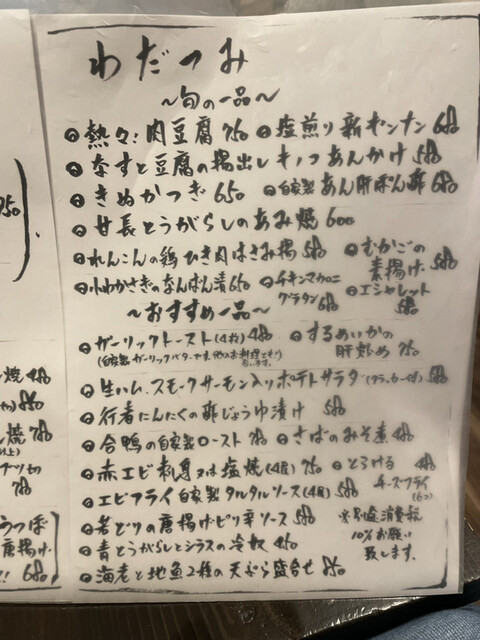 わだつみ
～旬の一品～
熱々!肉豆腐 750
塩煎り新ギンナン 680
なすと豆腐の揚出しキノコあんかけ 580
きぬかつぎ 650
自家製あん肝ぽん酢 680
甘長とうがらしのあみ焼 600
れんこんの鶏ひき肉はさみ揚 580
むかごの
素揚げ 580
小わかさぎのなんばん漬 650
チキンマカロニ
グラタン 680
エシャレット
580
～おすすめ一品～
ガーリックトースト(4枚) 480
(自家製ガーリックバターです。他のお料理にも!
するめいかの
肝炒め 750
生ハム、スモークサーモン入りポテトサラダ(クラッカー付) 580
行者にんにくの酢じょうゆ漬け 580
合鴨の自家製ロースト 780
さばのみそ煮 480
赤エビ刺身又は塩焼(4尾) 750
とろける 480
チーズフライ
(6コ)
エビフライ自家製タルタルソース(4尾) 580
若どりの唐揚げ・ピリ辛ソース 580
青とうがらしとシラスの冷奴 450
海老と地魚2種の天ぷら盛合せ 850
※別途消費税
10%お願い
致します。
950
焼 480
850
焼 780
以上)
780
うつぼ
唐揚げ
680